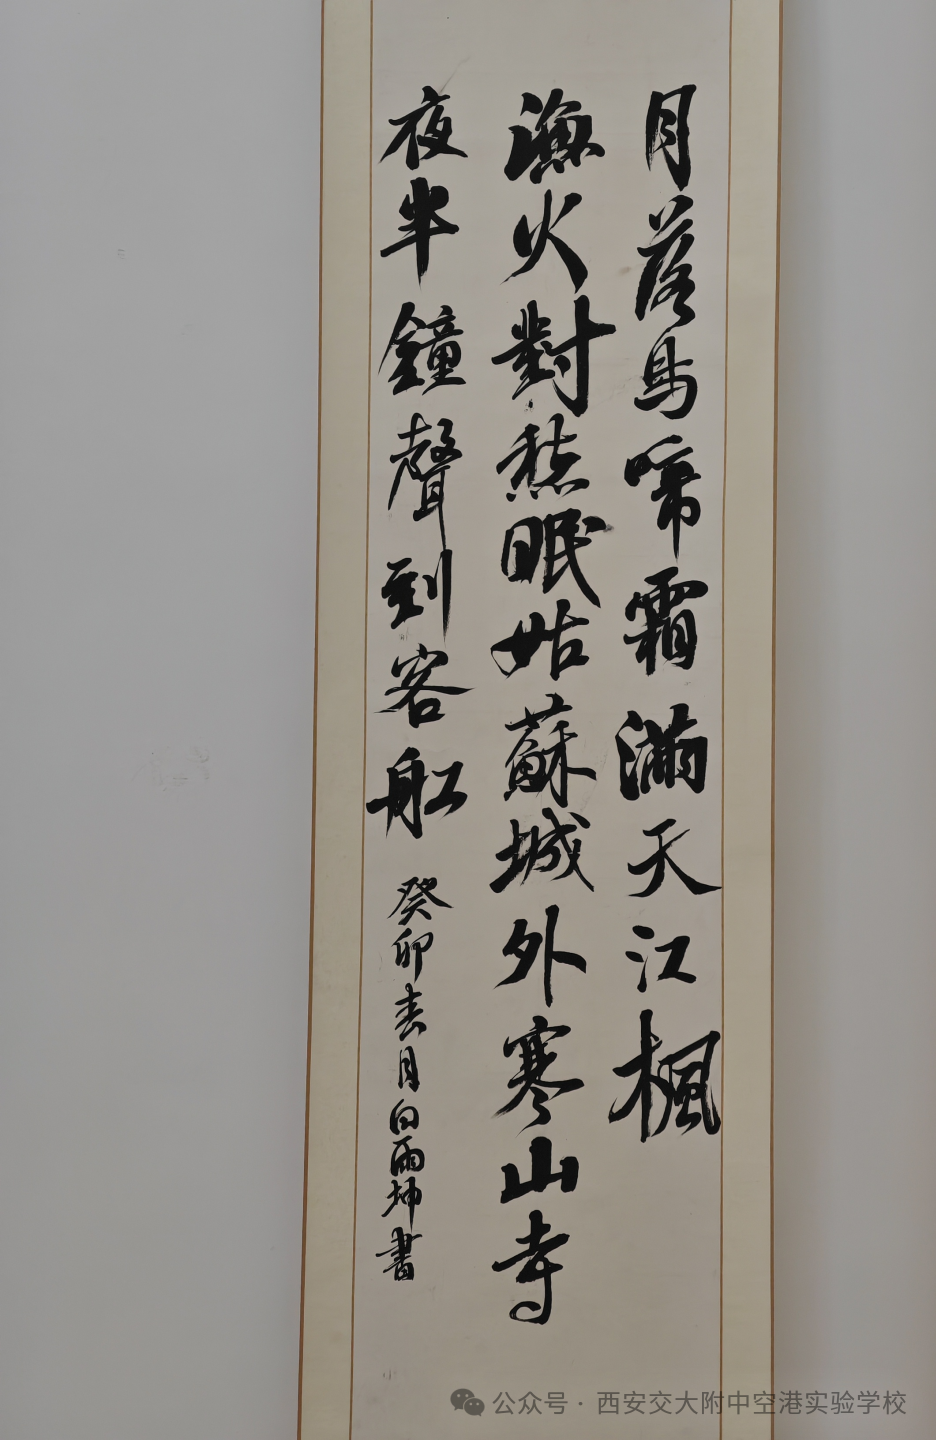 月落烏啼霜滿天江楓
漁火對愁眠姑蘇城外寒山寺
夜半鐘聲到客船 癸卯春月白雨坤書
公众号 · 西安交大附中空港实验学校